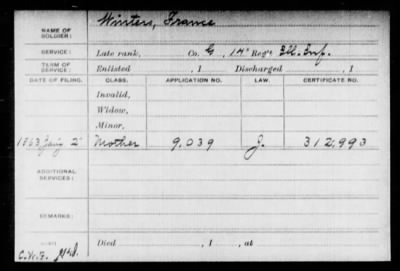 Winters, France
NAME OF SOLDIER:
SERVICE: Late rank, Co. G, 14" Reg't Ill. Inf.
TERM OF SERVICE: Enlisted , 1 Discharged , 1
DATE OF FILING. CLASS. APPLICATION NO. LAW. CERTIFICATE NO.
Invalid,
Widow,
Minor,
1863 Jan'y 2 Mother 9,039 J. 312,993
ADDITIONAL SERVICES:
REMARKS:
Died , 1 , at